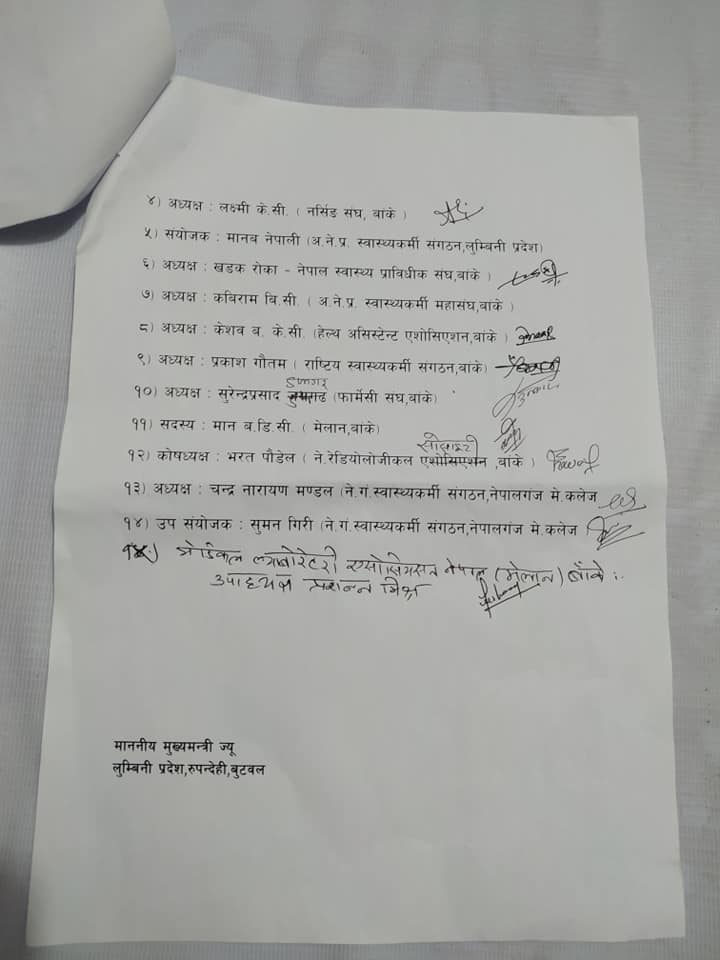 ४) अध्यक्ष : लक्ष्मी के.सी. ( नर्सिङ संघ, बांके )
५) संयोजक : मानब नेपाली (अ.ने.प्र. स्वास्थ्यकर्मी संगठन,लुम्बिनी प्रदेश)
६) अध्यक्ष : खडक रोका - नेपाल स्वास्थ्य प्राविधीक संघ,बांके )
७) अध्यक्ष : कबिराम बि.सी. ( अ.ने.प्र. स्वास्थ्यकर्मी महासंघ,बांके )
८) अध्यक्ष : केशव ब. के.सी. (हेल्थ असिस्टेन्ट एशोसिएशन,बांके )
९) अध्यक्ष : प्रकाश गौतम ( राष्टिय स्वास्थ्यकर्मी संगठन,बांके)
१०) अध्यक्ष : सुरेन्द्रप्रसाद (फार्मेसी संघ,बांके)
११) सदस्य : मान ब.डि.सी. ( मेलान,बांके)
सोसाइटी
१२) कोषध्यक्ष : भरत पौडेल ( ने.रेडियोलोजीकल एशोसिएशन ,बांके )
१३) अध्यक्ष : चन्द्र नारायण मण्डल (ने.गं.स्वास्थ्यकर्मी संगठन,नेपालगंज मे.कलेज
१४) उप संयोजक : सुमन गिरी (ने.गं.स्वास्थ्यकर्मी संगठन,नेपालगंज मे.कलेज
मेडिकल ल्याबोरेटरी एसोसियसन नेपाल (मेलान) बाँके
उपाध्यक्ष
माननीय मुख्यमन्त्री ज्यू
लुम्बिनी प्रदेश,रुपन्देही,बुटवल